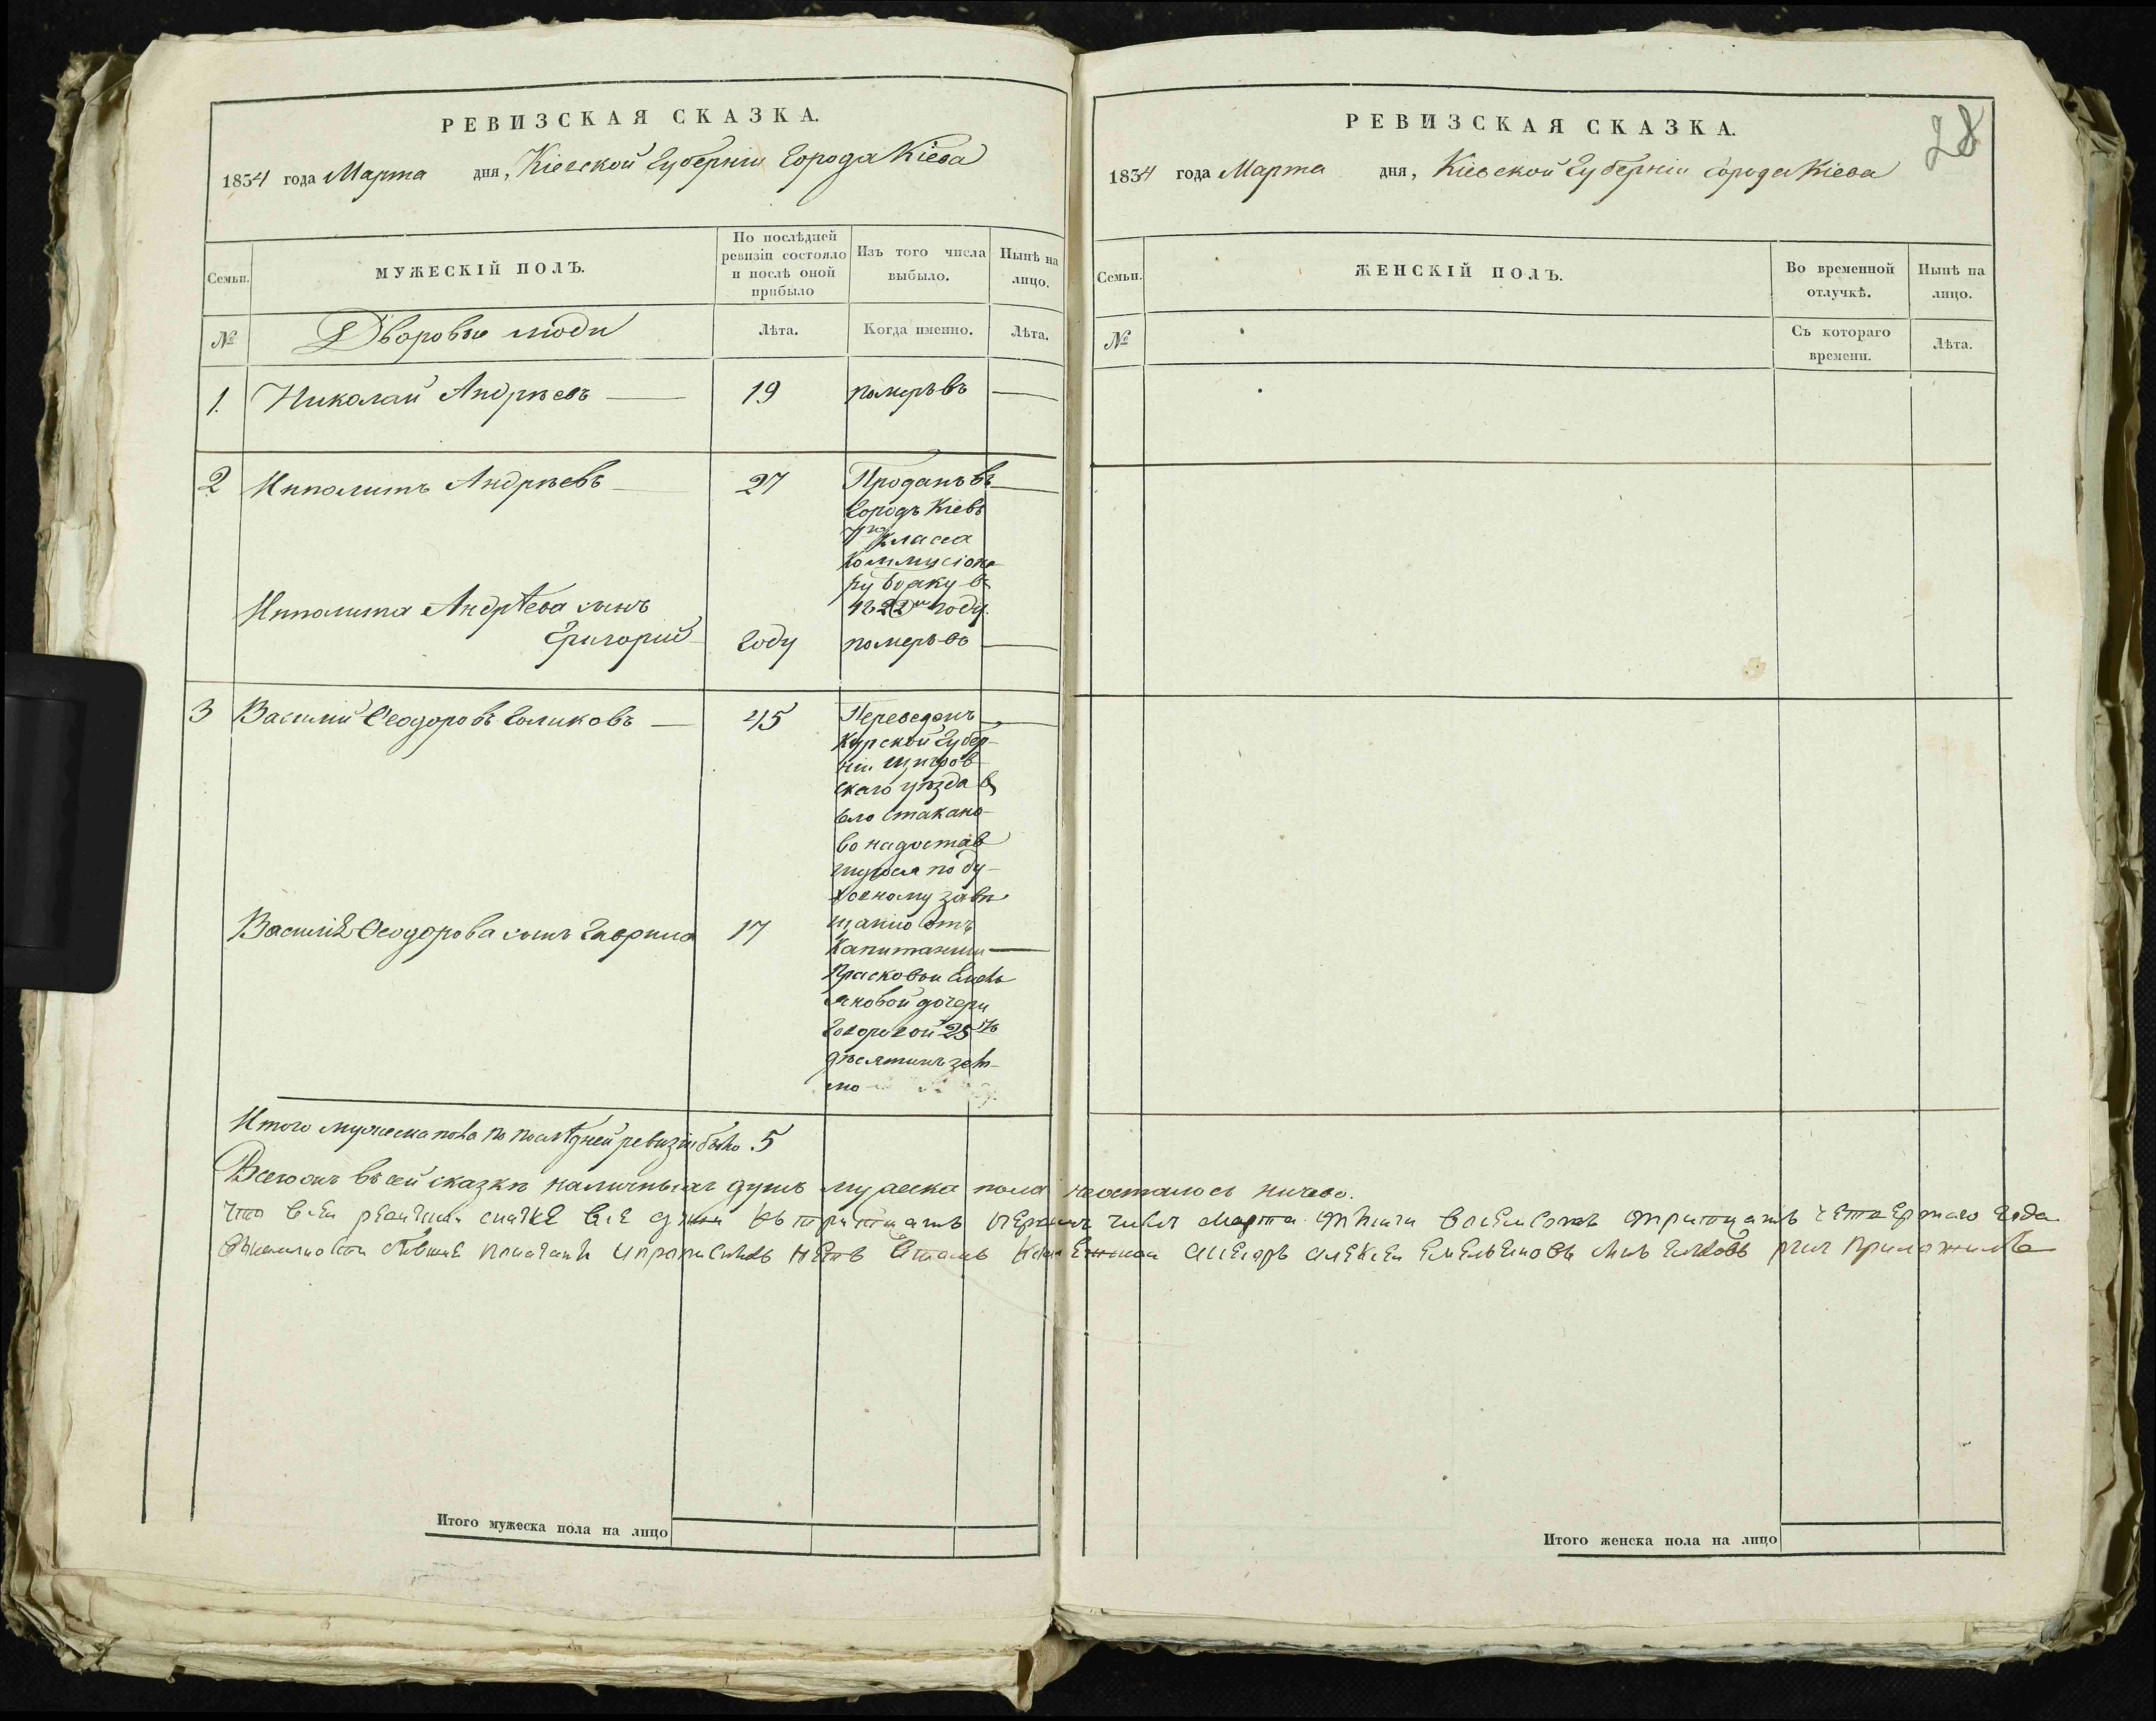 РЕВИЗСКАЯ СКАЗКА.
1834 года Марта дня, Кіевской Губерніи Города Кіева
Семьи.
МУЖЕСКІЙ ПОЛЪ.
По послѣдней
ревизіи состояло
и послѣ оной
прибыло
Изъ того числа
выбыло.
Нынѣ на
лицо.
№
Дворовые люди
Лѣта.
Когда именно.
Лѣта.
1. Николай Андрѣевъ 19 померъ въ
2 Ипполитъ Андрѣевъ 27 Проданъ въ
Городъ Кіевъ
7го Класса
Коммисіоне
ру въ
1822м году.
Ипполита Андрѣева сынъ
Григорій Году померъ въ
3 Василий Феодоровъ Голиковъ 45 Переведенъ
Курской Губер-
ніи Щигров
скаго уѣзда в
село Стакано-
во на достав
шуюся по ду-
ховному завѣ
щанію отъ
Василія Феодорова сынъ Гаврила 17
Капитанши
Прасковьи Емель
яновой дочери
25
дѣсятинъ зем-
лю
Итого мужеска пола по послѣдней ревизіи было 5
Всего въ сей сказкѣ наличныхъ душъ мужеска пола неосталось ничево.
что всеи сказке все Марта тритцать четвертаго года
нетъ въ томъ алексеи приложилъ
Итого мужеска пола на лицо
РЕВИЗСКАЯ СКАЗКА.
28
1834 года Марта дня, Кіевской Губерніи города Кіева
Семьи.
ЖЕНСКІЙ ПОЛЪ.
Во временной
отлучкѣ.
Нынѣ на
лицо.
№
Съ котораго
времени.
Лѣта.
Итого женска пола на лицо